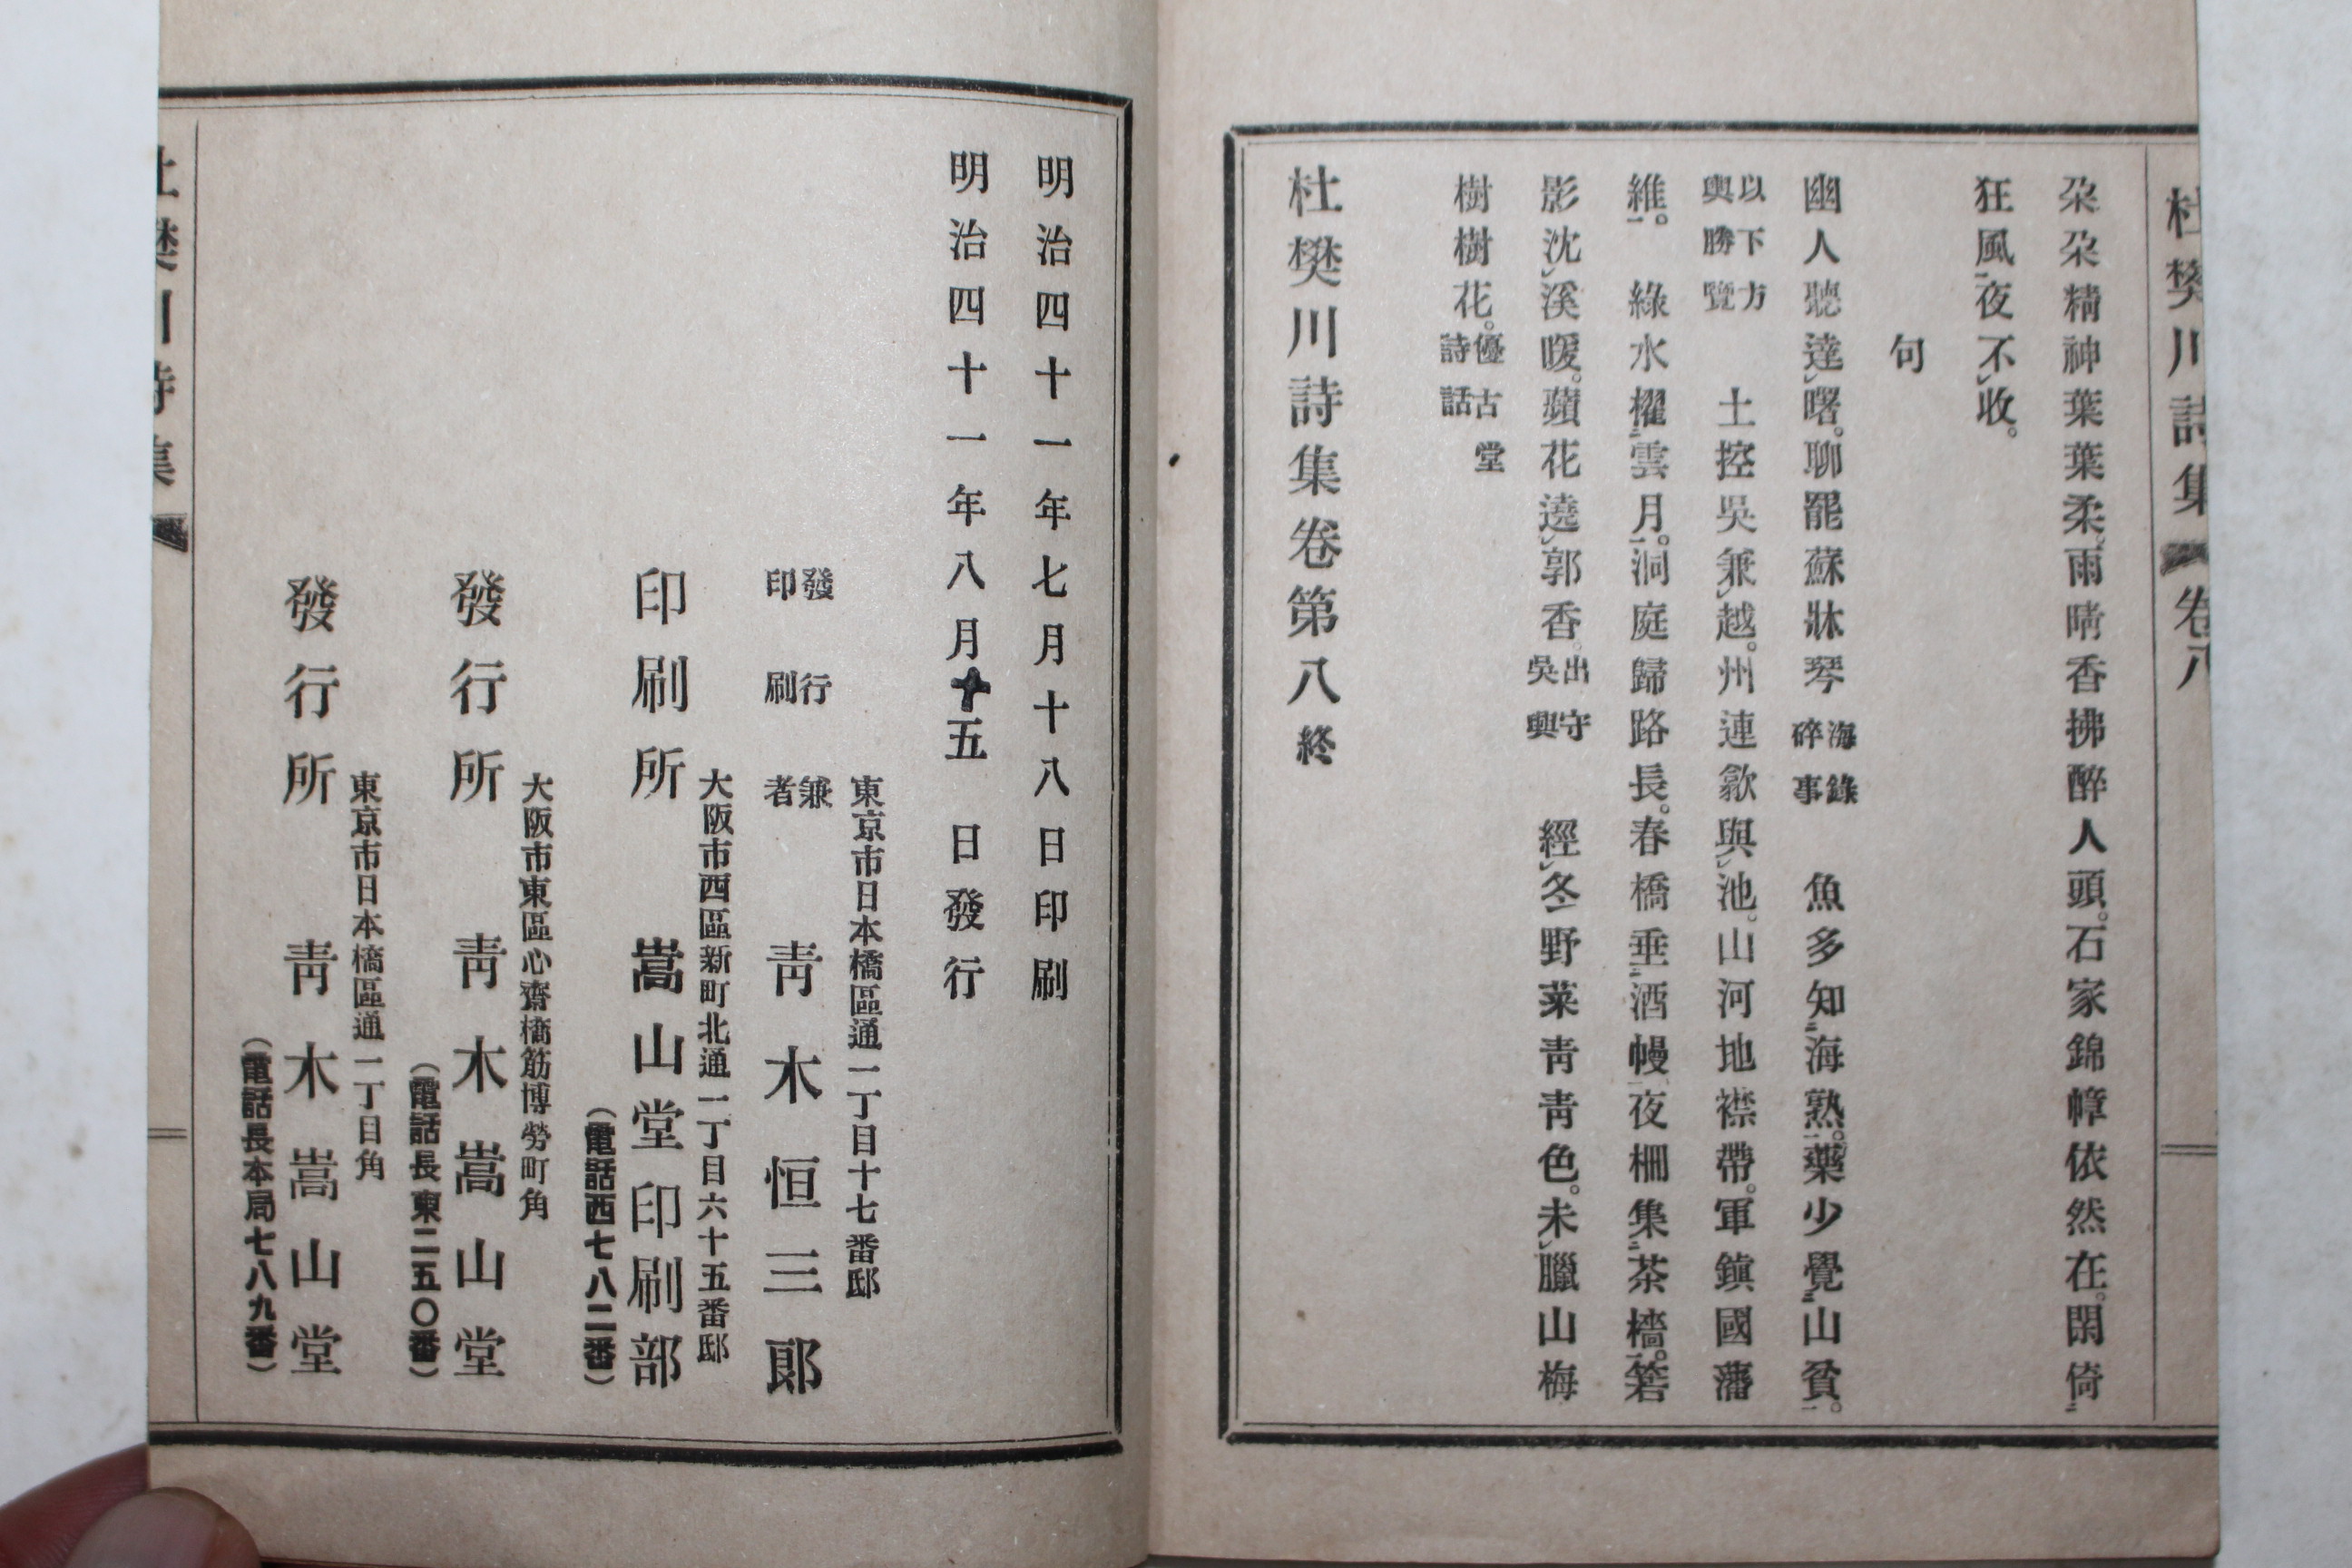 杜樊川詩集 卷八
朶朶精神葉葉柔雨晴香拂醉人頭。石家錦幛依然在。閑倚
狂風夜不收。
句
幽人聽達曙。聊罷蘇牀琴 海錄碎事 魚多知海熟。藥少覺山貧。
以下方輿勝覽 土控吳兼越。州連歙與池。山河地襟帶。軍鎭國藩
維。 綠水櫂雲月。洞庭歸路長。春橋垂酒幔夜柵集茶檣。箬
影沈溪暖。蘋花遶郭香。出守吳興 經冬野菜靑靑色。未臘山梅
樹樹花。優古堂詩話
杜樊川詩集卷第八終
明治四十一年七月十八日印刷
明治四十一年八月十五日發行
東京市日本橋區通一丁目十七番邸
發行兼印刷者 靑木恒三郞
大阪市西區新町北通一丁目六十五番邸
印刷所 嵩山堂印刷部
(電話西七八二番)
大阪市東區心齋橋筋博勞町角
發行所 靑木嵩山堂
(電話長東二五〇番)
東京市日本橋區通一丁目角
發行所 靑木嵩山堂
(電話長本局七八九番)
杜樊川詩集